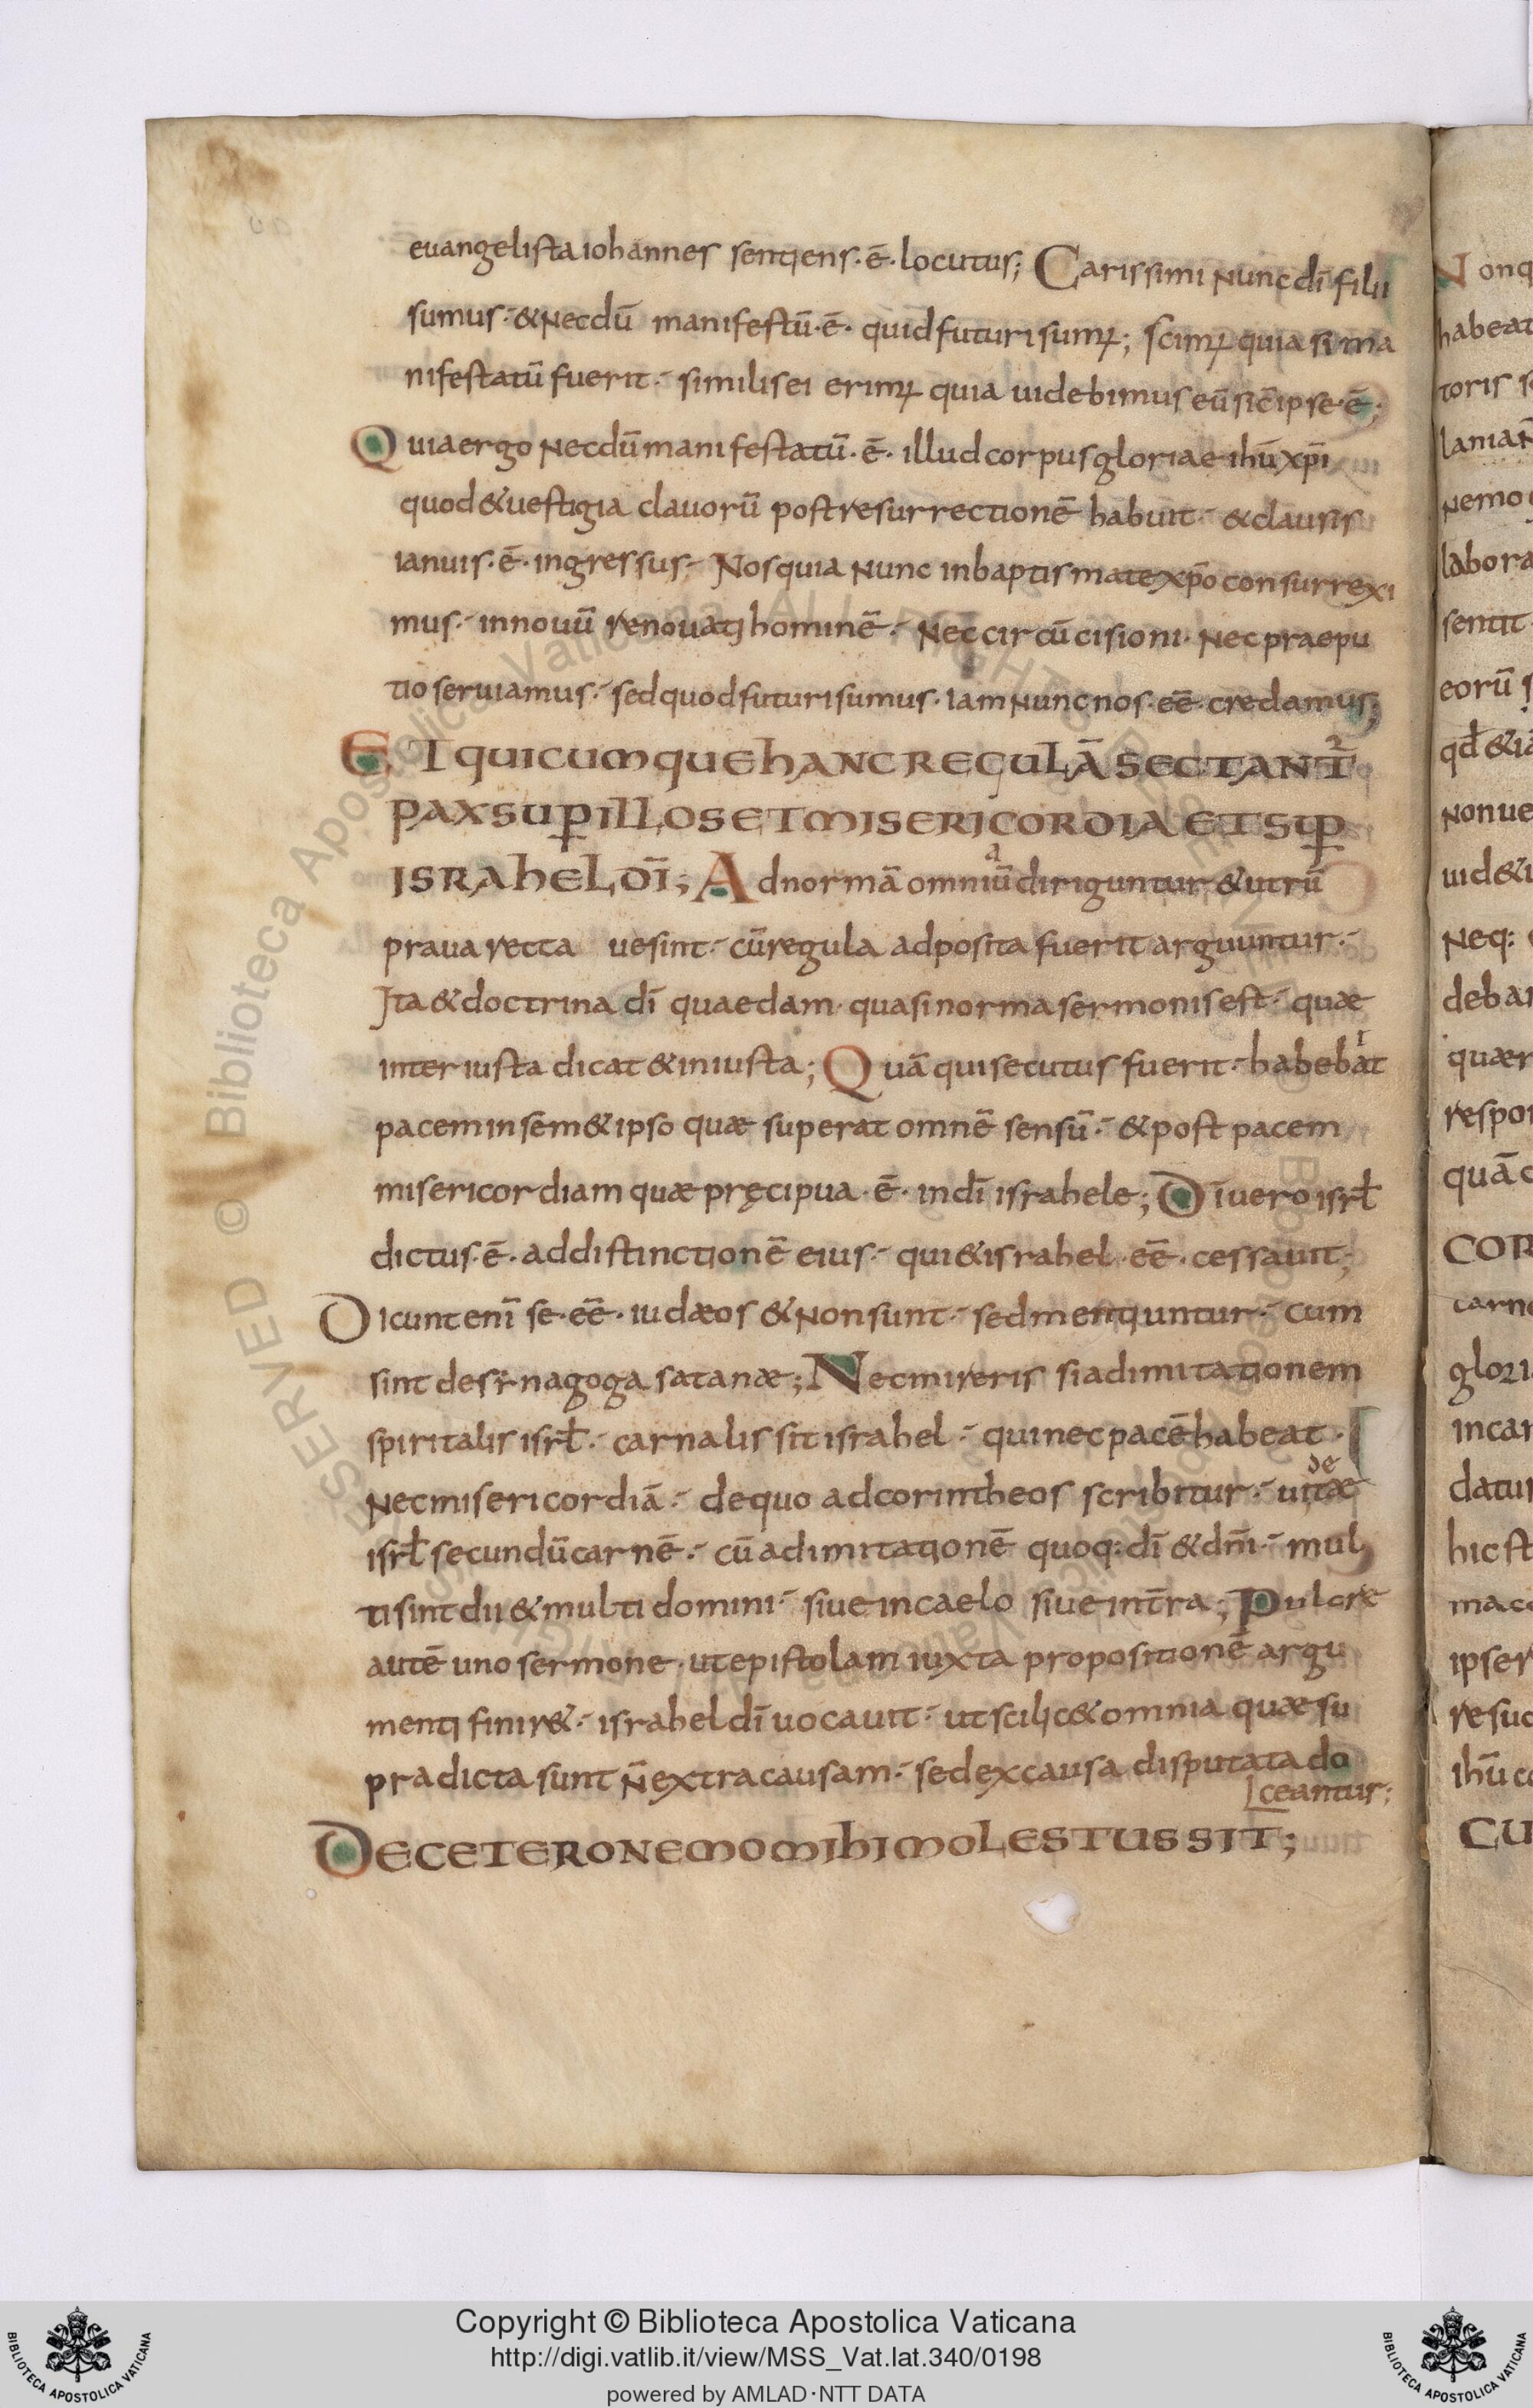 euangelista iohannes sentiens·ē·locutus; Carissimi nunc dī filii
sumus·& necdū manifestū·ē· quid futuri sumꝰ; scimꝰ quia si ma
nifestatū fuerit· similis ei erimꝰ quia uidebimus eū sic̄ ipse·ē·;
Quia ergo necdū manifestatū·ē· illud corpus gloriae ihū xp̄i
quod & uestigia clauorū post resurrectionē habuit· & clausis
ianuis·ē·ingressus· Nos quia nunc in baptismate xp̄o consurrexi
mus· in nouū renouati hominē· nec circūcisioni· nec praepu
tio seruiamus· sed quod futuri sumus· iam nunc nos·eē·credamus;
ET QUICUMQUE HANC REGULĀ SECTANT̄
PAX SUꝑ ILLOS ET MISERICORDIA ET SUꝑ
ISRAHEL DĪ; Ad normā omniū diriguntur & utrū
a
praua recta ue sint· cū regula adposita fuerit arguuntur·
Ita & doctrina dī quaedam· quasi norma sermonis est· quæ
inter iusta dicat & iniusta; Quā qui secutus fuerit· habebat
i
pacem in sem&ipso quæ superat omnē sensū· & post pacem
misericordiam quæ pręcipua·ē· in dī israhele; Dī uero isrł
dictus·ē· ad distinctionē eius· qui & israhel·eē·cessauit;
Dicunt enī se·eē·iudæos & non sunt· sed mentiuntur· cum
sint de sẏnagoga satanæ; Nec mireris si ad imitationem
spiritalis isrł· carnalis sit israhel· qui nec pacē habeat·
nec misericordiā· de quo ad corintheos scribitur· uitæ
de
isrł secundū carnē· cū ad imitationē quoq: dī & dn̄i· mul
ti sint dii & multi domini· siue in caelo siue in t̄ra; Pulcre
autē uno sermone· ut epistolam iuxta propositionē argu
menti finir&· israhel dī uocauit· ut scilic& omnia quæ su
pra dicta sunt n̄ extra causam· sed ex causa disputata do
ceantur;
DE CETERO NEMO MIHI MOLESTUS SIT;
N onq
habeat
toris s
lania
nemo
labora
sentit
eorū s
qd̄ & ia
non ue
uid & i
neq:
debar
quær
respo
quā
COR
carn
glori
incar
datu
hic st
mac
ipser
resuc
ihū c
CU
Copyright © Biblioteca Apostolica Vaticana
http://digi.vatlib.it/view/MSS_Vat.lat.340/0198
powered by AMLAD·NTT DATA
BIBLIOTECA APOSTOLICA VATICANA
BIBLIOTECA APOSTOLICA VATICANA